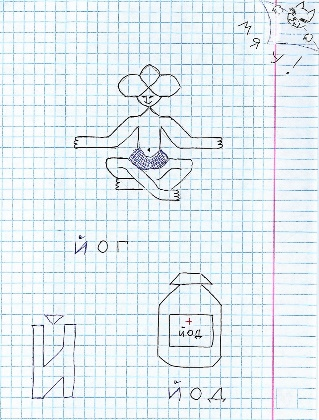 МЯУ!
ЙОГ
Й
ЙОД
ЙОД